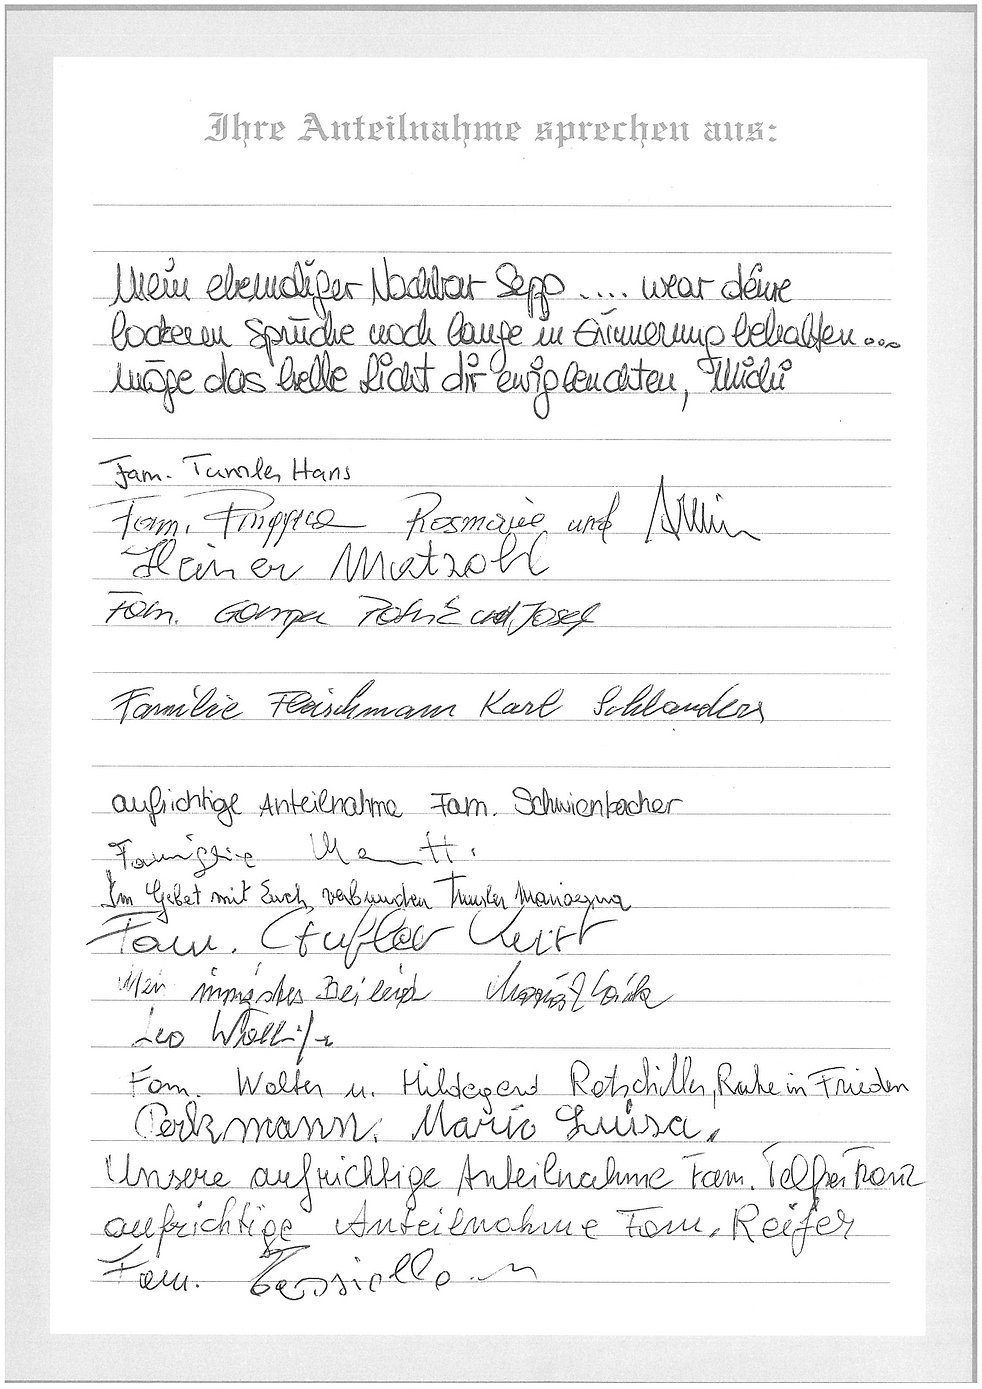 Ihre Anteilnahme sprechen aus:
Mein ehemaliger Nachbar Sepp .... wear deine
lockeren Sprüche noch lange in Erinnerung behalten...
möge das helle Licht dir ewig leuchten, Michi
Fam. Tumler Hans
Fam. Rosmarie und Armin
Heiner Matzohl
Fam. Gamper und Josef
Familie Fleischmann Karl Schlanders
aufrichtige Anteilnahme Fam. Schwienbacher
Im Gebet mit Euch verbunden Tumler
Fam. Stufler Kurt
Mein innigstes Beileid
Leo
Fam. Walter u. Hildegard Ratschiller, Ruhe in Frieden
Perkmann. Maria Luisa.
Unsere aufrichtige Anteilnahme Fam. Telfser Franz
aufrichtige Anteilnahme Fam. Reifer
Fam.